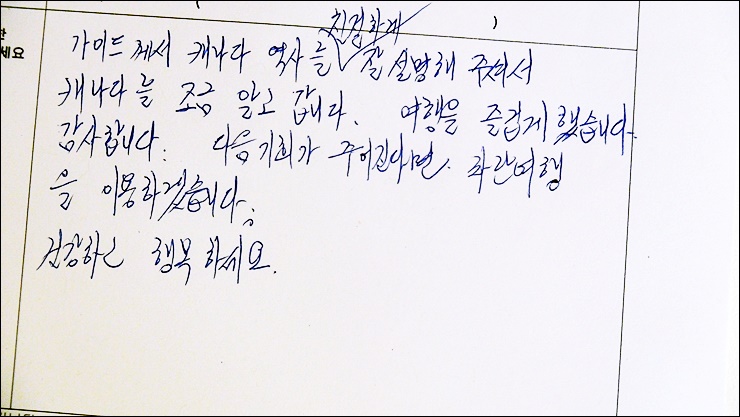 세요
)
친절하게
가이드께서 캐나다 역사를 잘 설명해 주셔서
캐나다를 조금 알고 갑니다. 여행을 즐겁게 했습니다.
감사합니다. 다음기회가 주어진다면 파란여행
을 이용하겠습니다.
건강하고 행복하세요.